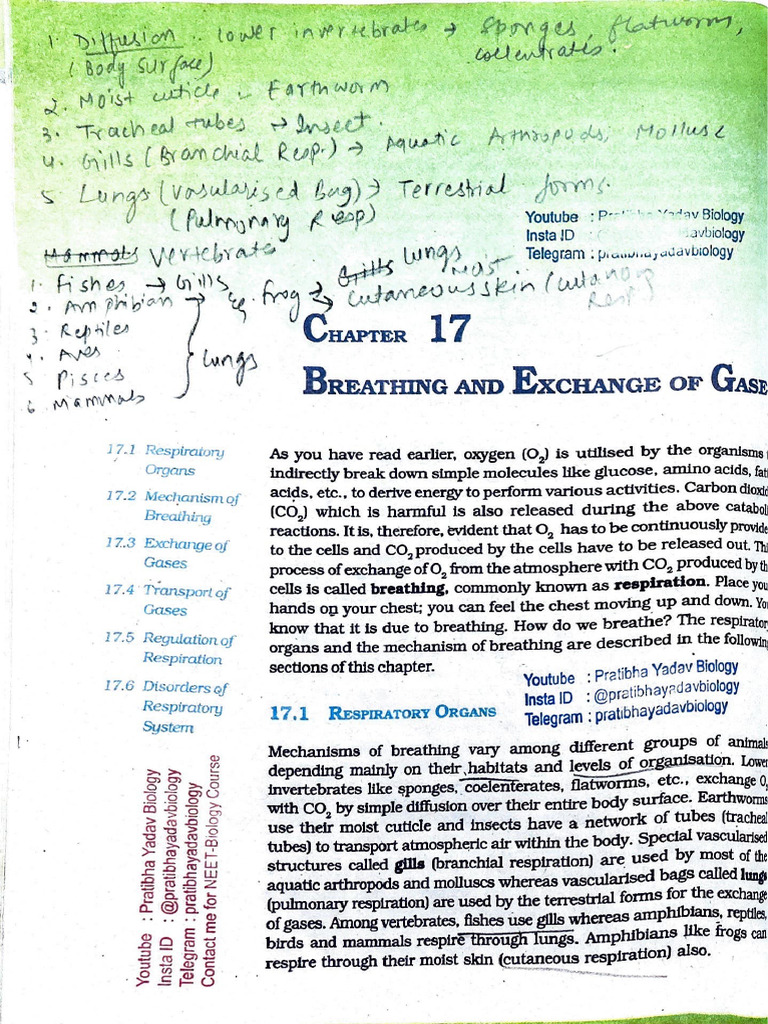 1. Diffusion .. lower invertebrates → Sponges, flatworms,
(Body Surface) coelentrates.
2. Moist cuticle - Earthworm
3. Tracheal tubes → Insect.
4. Gills (Branchial Resp.) → Aquatic Arthropods, Mollusc
5 Lungs (Vasularised Bag) → Terrestrial forms.
(Pulmonary Resp)
Youtube : Yadav Biology
Insta ID : davbiology
Telegram : pratibhayadavbiology
Mammals Vertebrate
1. Fishes → Gills
2. Amphibian → eg. frog → Gills Lungs
→ Cutaneous skin (cutaneous
Moist
Resp)
3. Reptiles
4. Aves
5 Pisces
6. Mammals
Lungs
CHAPTER 17
BREATHING AND EXCHANGE OF GASE
17.1 Respiratory
Organs
17.2 Mechanism of
Breathing
17.3 Exchange of
Gases
17.4 Transport of
Gases
17.5 Regulation of
Respiration
17.6 Disorders of
Respiratory
System
As you have read earlier, oxygen (O₂) is utilised by the organisms
indirectly break down simple molecules like glucose, amino acids, fatt
acids, etc., to derive energy to perform various activities. Carbon dioxid
(CO₂) which is harmful is also released during the above cataboli
reactions. It is, therefore, evident that O₂ has to be continuously provide
to the cells and CO₂ produced by the cells have to be released out. Thi
process of exchange of O₂ from the atmosphere with CO₂ produced by th
cells is called breathing, commonly known as respiration. Place you
hands on your chest; you can feel the chest moving up and down. Yo
know that it is due to breathing. How do we breathe? The respirator
organs and the mechanism of breathing are described in the following
sections of this chapter.
Youtube : Pratibha Yadav Biology
Insta ID : @pratibhayadavbiology
Telegram : pratibhayadavbiology
17.1 RESPIRATORY ORGANS
Mechanisms of breathing vary among different groups of animals
depending mainly on their habitats and levels of organisation. Lower
invertebrates like sponges, coelenterates, flatworms, etc., exchange O₂
with CO₂ by simple diffusion over their entire body surface. Earthworms
use their moist cuticle and insects have a network of tubes (tracheal
tubes) to transport atmospheric air within the body. Special vascularised
structures called gills (branchial respiration) are used by most of the
aquatic arthropods and molluscs whereas vascularised bags called lungs
(pulmonary respiration) are used by the terrestrial forms for the exchange
of gases. Among vertebrates, fishes use gills whereas amphibians, reptiles,
birds and mammals respire through lungs. Amphibians like frogs can
respire through their moist skin (cutaneous respiration) also.
Youtube : Pratibha Yadav Biology
Insta ID : @pratibhayadavbiology
Telegram : pratibhayadavbiology
Contact me for NEET-Biology Course